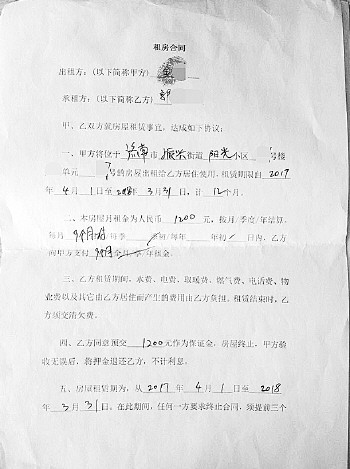 租房合同
出租方：（以下简称甲方）
承租方：（以下简称乙方）郭
甲、乙双方就房屋租赁事宜，达成如下协议：
一、甲方将位于 济南 市 振兴 街道 阳光 小区 号楼
单元 号的房屋出租给乙方居住使用，租赁期限自 2017
年 4 月 1 日至 2018 年 3 月 31 日，计 12 个月。
二、本房屋月租金为人民币 1200 元，按月/季度/年结算。
每月 月初/每季 季初/每年 年初 日内，乙方
向甲方支付 全月/季/年租金。
三、乙方租赁期间，水费、电费、取暖费、燃气费、电话费、物
业费以及其它由乙方居住而产生的费用由乙方负担。租赁结束时，乙
方须交清欠费。
四、乙方同意预交 1200 元作为保证金，房屋终止，甲方验
收无误后，将押金退还乙方，不计利息。
五、房屋租赁期为，从 2017 年 4 月 1 日至 2018
年 3 月 31 日。在此期间，任何一方要求终止合同，须提前三个